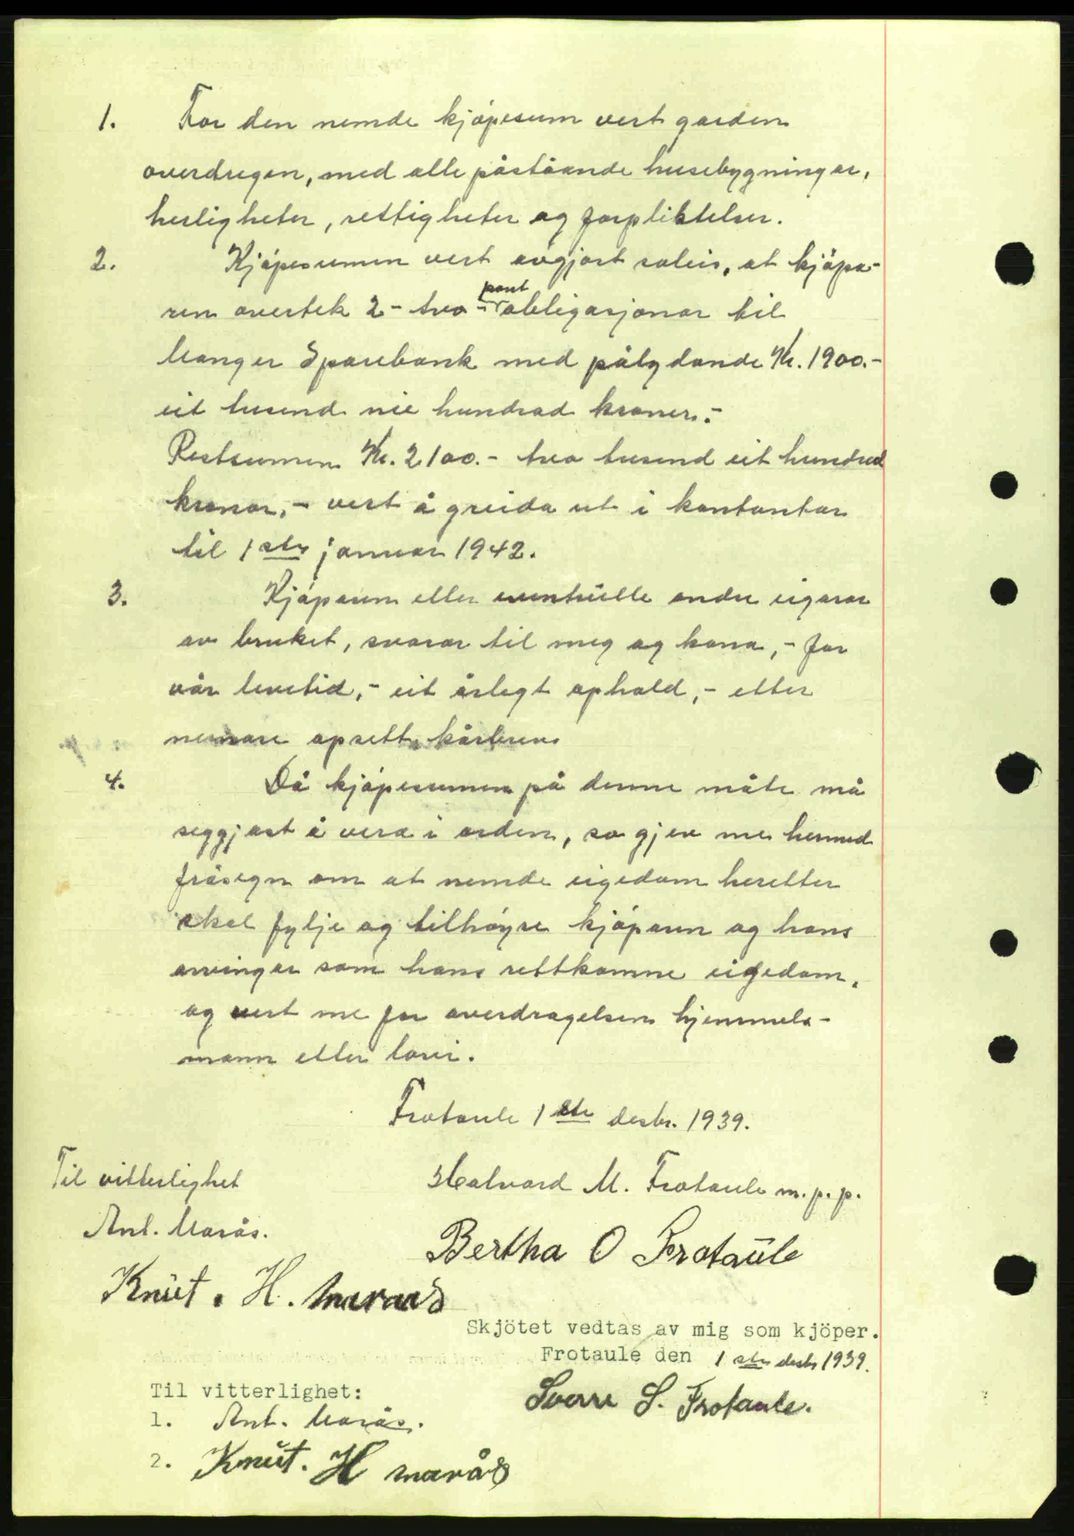 1. For den nemde kjøpesum vert garden
overdregen, med alle påståande husebygningar,
herligheter, rettigheter og forpliktelser.
2. Kjøpesumen vert avgjort soleis, at kjøpa-
ren overtek 2 - tvo - pantobligasjonar til
Manger Sparebank med pålydande Kr. 1900.-
eit tusend nie hundrad kroner.-
Restsumen Kr. 2100.- tvo tusend eit hundred
kronor, - vert å greida ut i kontantar
til 1ste januar 1942.
3. Kjøparen eller eventuelle andre eigarar
av bruket, svarar til meg og kona, - for
vår levetid, - eit årlegt ophald, - etter
nemare opsett kårbrev.
4. Då kjøpesumen på denne måte må
seggjast å vera i orden, so gjev me hermed
fråsegn om at nemde eigedom heretter
skal fylje og tilhøyre kjøparen og hans
arvingar som hans rettkomne eigedom,
og vert me for overdragelsen hjemmels-
mann etter lovi.
Frotaule 1ste desbr. 1939.
Til vitterlighet
Halvard M. Frotaule m.p.p.
Ant. Marås.
Bertha O Frotaule
Knut. H. Maraas
Skjötet vedtas av mig som kjöper.
Frotaule den 1ste desbr 1939.
Til vitterlighet:
Sverre S. Frotaule.
1. Ant. Marås.
2. Knut. H Marås